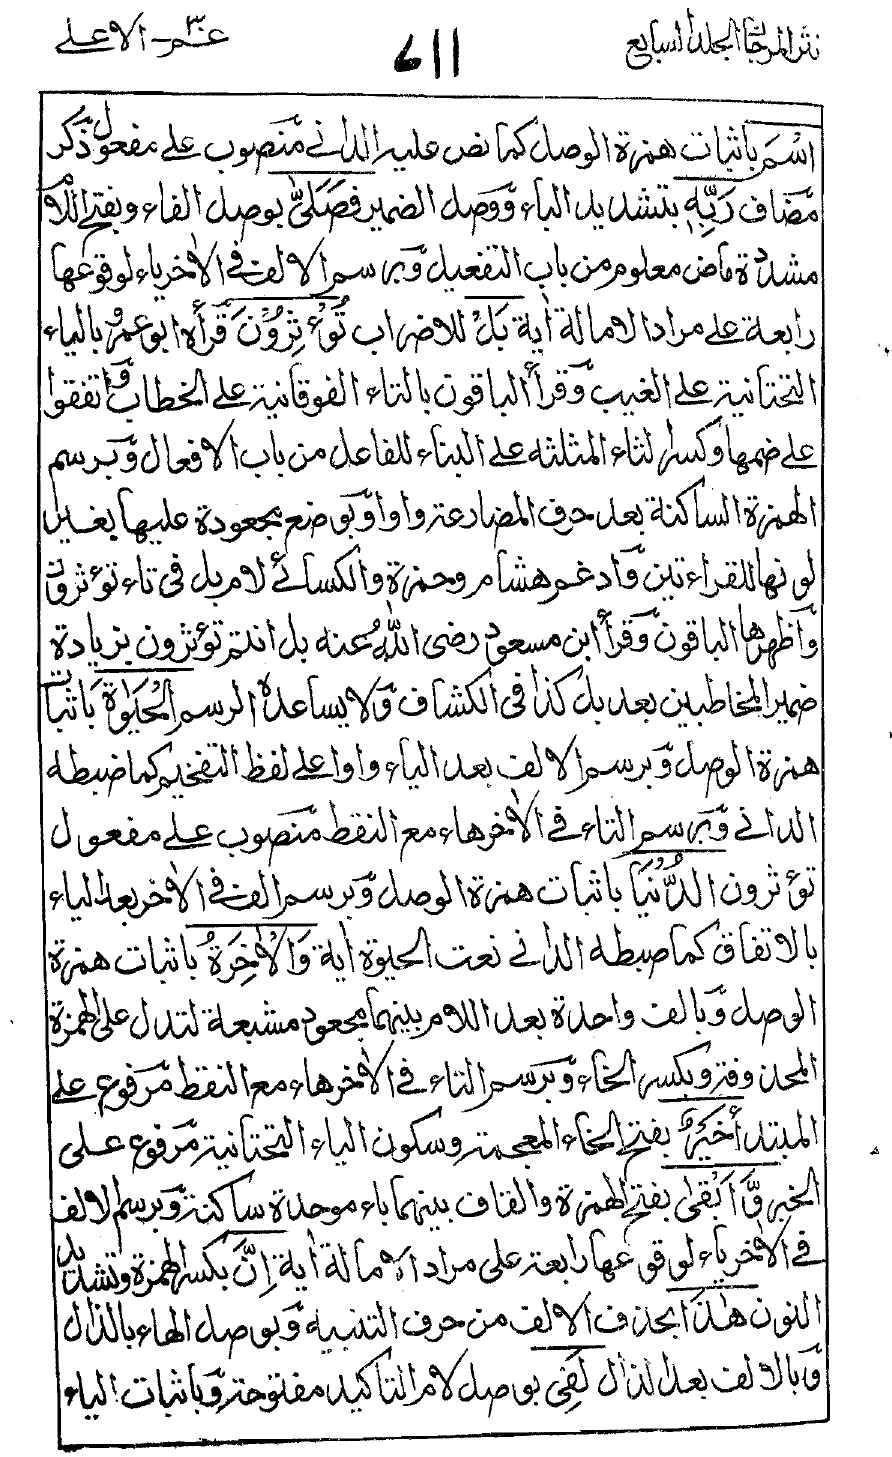 نثر المرجان المجلد السابع
٧١١
عم ٣٠ الاعلى
اسْمَ باثبات همزة الوصل كما نص عليه الدانى منصوب على مفعول ذكر
مضاف رَبِّهٖ بتشديد الباء ووصل الضمير فَصَلّٰى بوصل الفاء وبفتح اللام
مشددة ماض معلوم من باب التفعيل وبرسم الالف فى الاٰخر ياء لوقوعها
رابعة على مراد الامالة اٰية بَلْ للاضراب تُؤْثِرُوْنَ قرأه ابو عمرو بالياء
التحتانية على الغيب وقرأ الباقون بالتاء الفوقانية على الخطاب واتفقوا
على ضمها وكسر الثاء المثلثه على البناء للفاعل من باب الافعال وبرسم
الهمزة الساكنة بعد حرف المضارعة واوا وبوضع مجعودة عليها بغير
لونها للقراءتين وادغم هشام وحمزة والكسائى لام بل فى تاء تؤثرون
واظهرها الباقون وقرأ ابن مسعود رضى الله عنه بل انتم تؤثرون بزيادة
ضمير المخاطبين بعد بل كذا فى الكشاف ولا يساعده الرسم الْحَيٰوةَ باثبات
همزة الوصل وبرسم الالف بعد الياء واوا على لفظ التفخيم كما ضبطه
الدانى وبرسم التاء فى الاٰخر هاء مع النقط منصوب على مفعول
تؤثرون الدُّنْيَا باثبات همزة الوصل وبرسم الف فى الاٰخر بعد الياء
بالاتفاق كما ضبطه الدانى نعت الحيوة اٰية وَالْاٰخِرَةُ باثبات همزة
الوصل وبالف واحدة بعد اللام بينهما مجعودة مشبعة لتدل على الهمزة
المحذوفة وبكسر الخاء وبرسم التاء فى الاٰخر هاء مع النقط مرفوع على
المبتدأ خَيْرٌ بفتح الخاء المعجمة وسكون الياء التحتانية مرفوع على
الخبر وَّاَبْقٰى بفتح الهمزة والقاف بينهما باء موحدة ساكنة وبرسم الالف
فى الاٰخر ياء لوقوعها رابعة على مراد الامالة اٰية اِنَّ بكسر الهمزة وتشديد
النون هٰذَا بحذف الالف من حرف التنبيه وبوصل الهاء بالذال
وبالالف بعد الذال لَفِى بوصل لام التاكيد مفتوحة وباثبات الياء